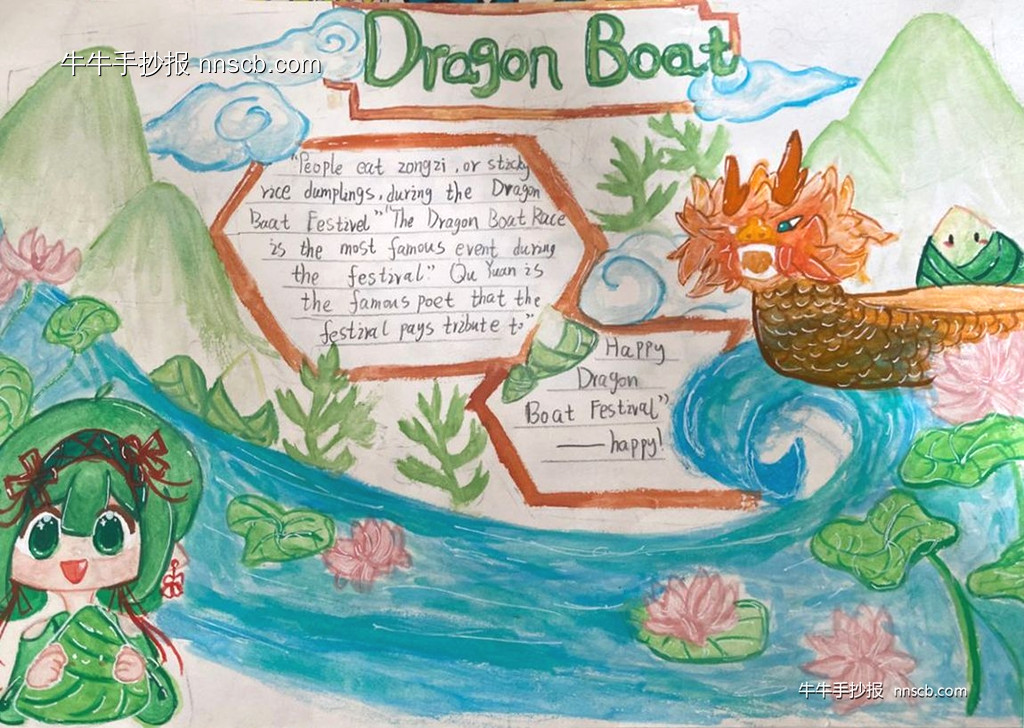 牛牛手抄报 nnscb.com
Dragon Boat
"People eat zongzi, or sticky
rice dumplings, during the Dragon
Baat Festivel" "The Dragon Boat Race
is the most famous event during
the festival." Qu Yuan is
the famous poet that the
festival pays tribute to"
Happy
Dragon
Boat Festival"
——happy!
牛牛手抄报 nnscb.com